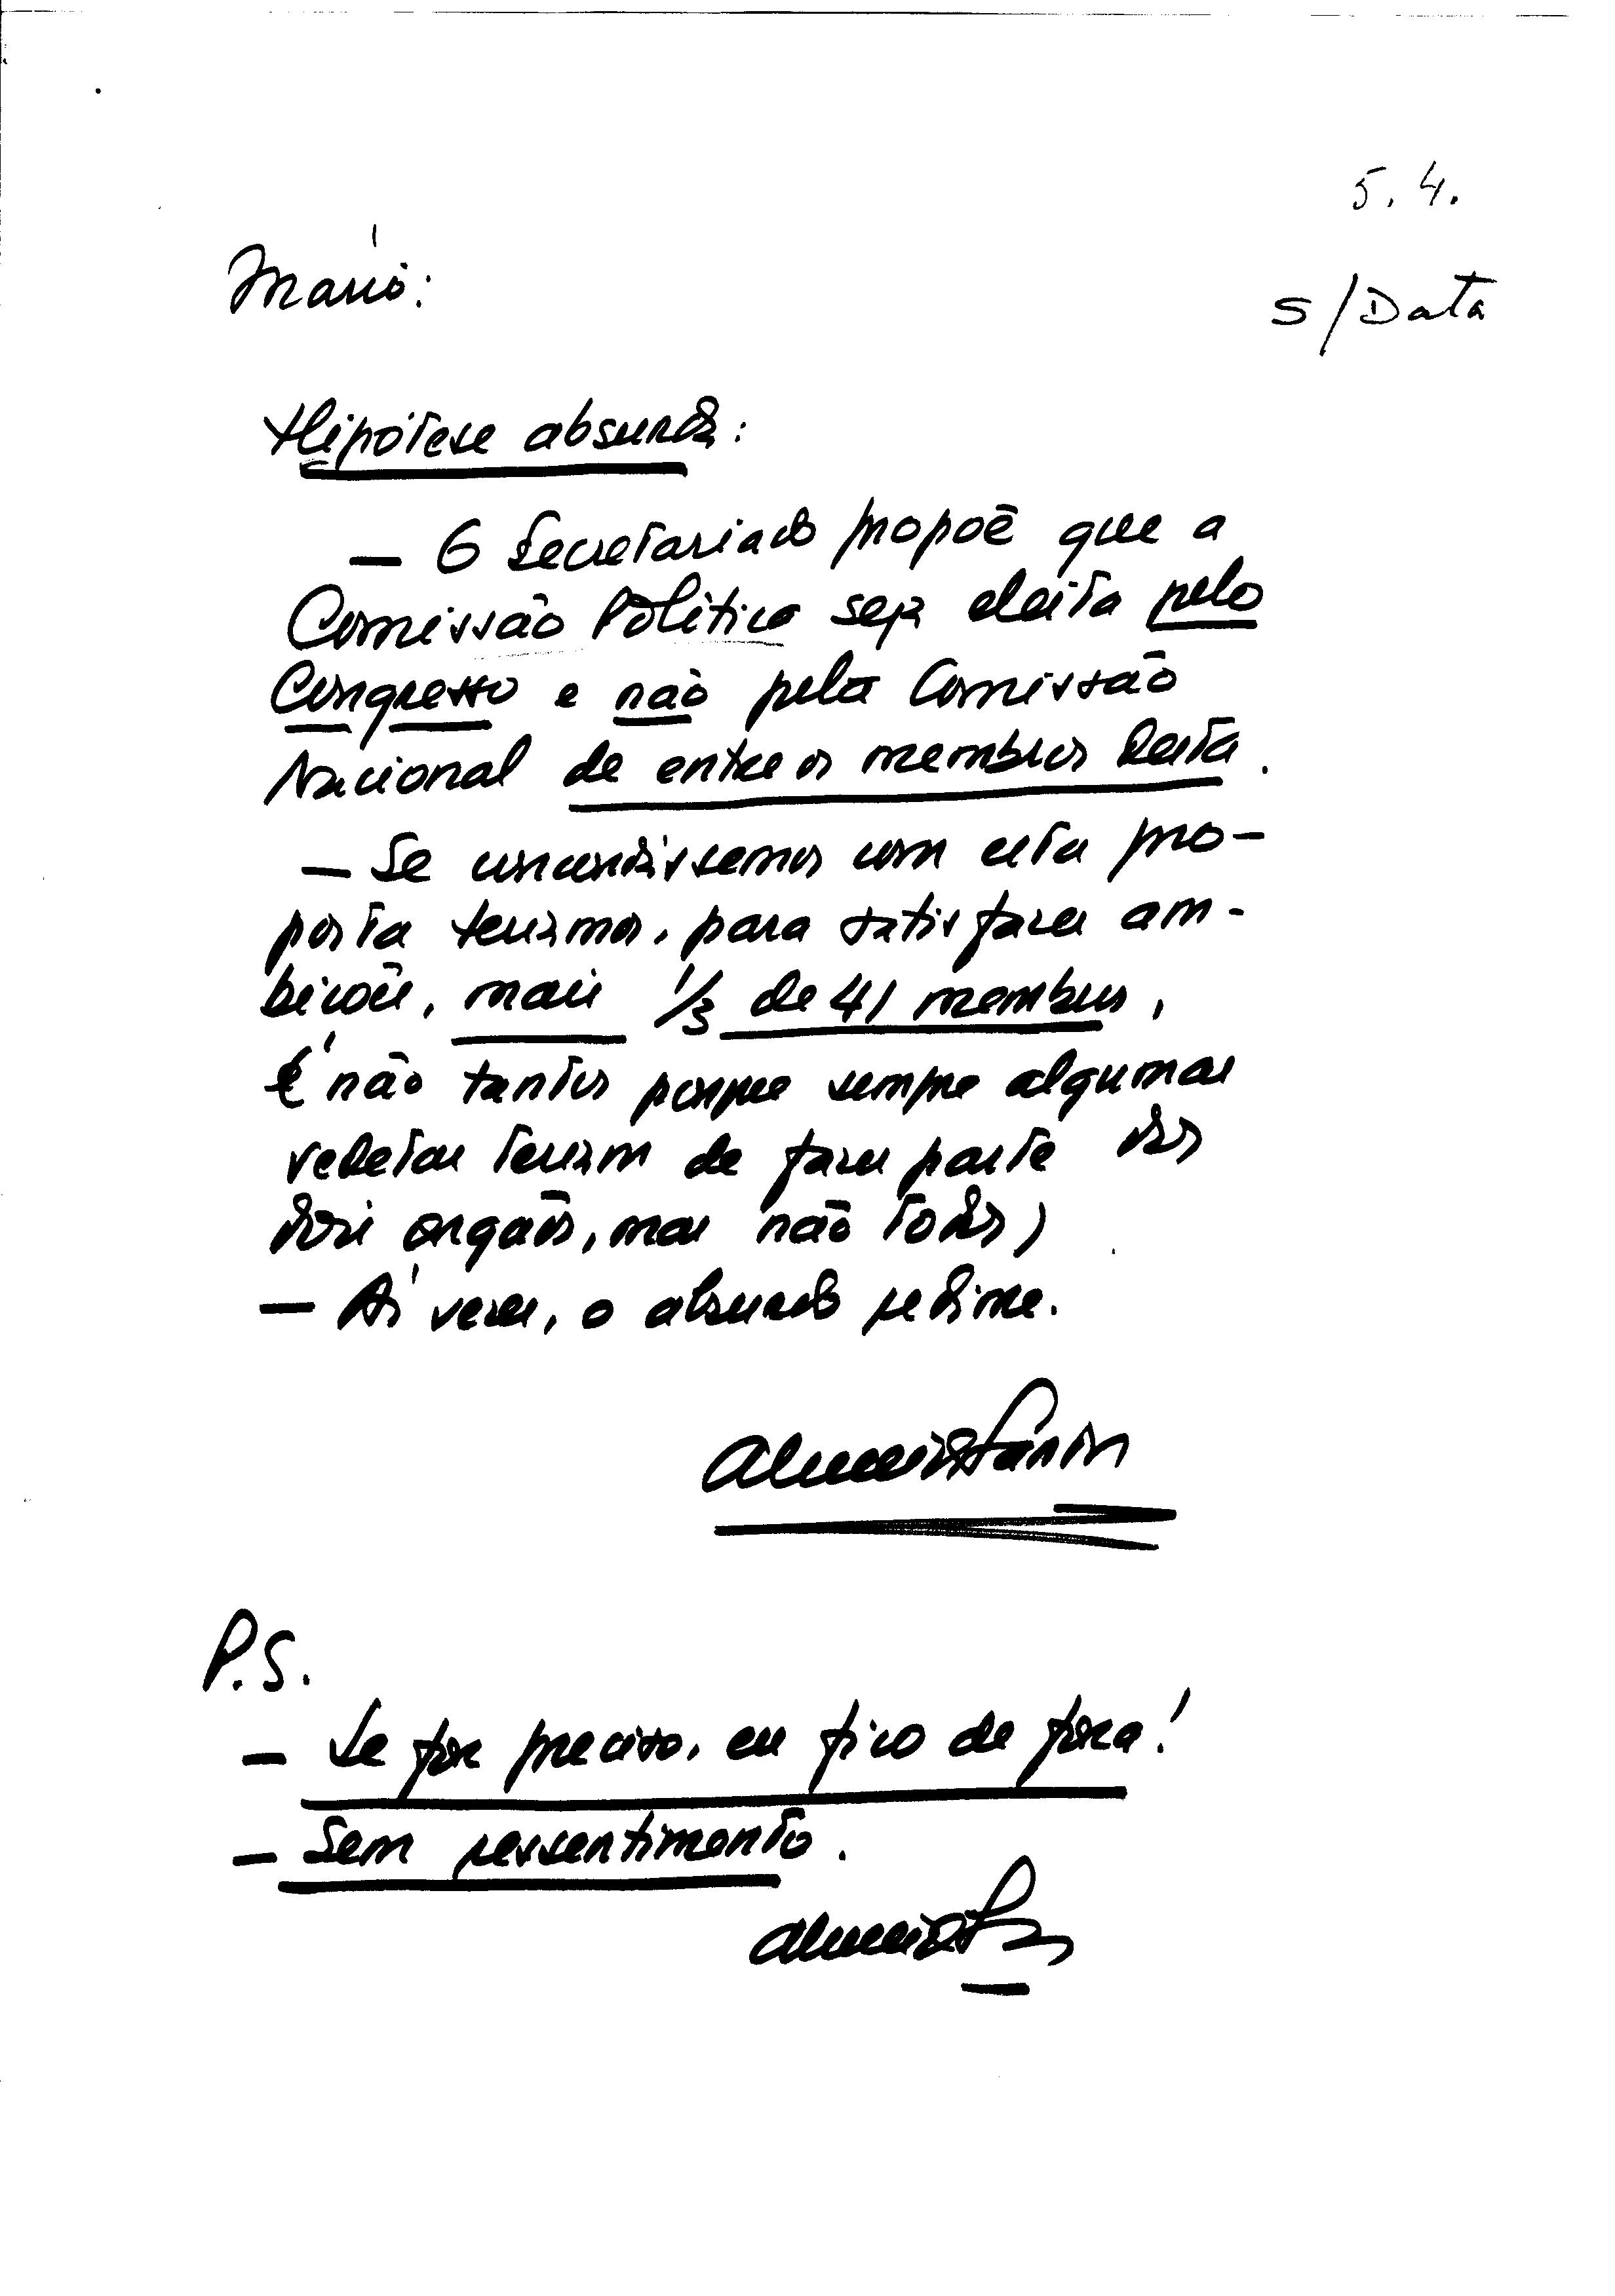 5.4.
Mário:
S/Data
Hipótese absurda:
— O Secretariado propõe que a
Comissão Política seja eleita pelo
Congresso e não pela Comissão
Nacional de entre os membros desta.
— Se concordássemos com esta pro-
posta teríamos, para satisfazer am-
bições, mais 1/3 de 41 membros,
E não tantos porque sempre algumas
vedetas teriam de fazer parte dos
dois orgãos, mas não todos)
— Às vezes, o absurdo redime.
Almeida Santos
P.S.
— Se for preciso, eu fico de fora!
— Sem ressentimento.